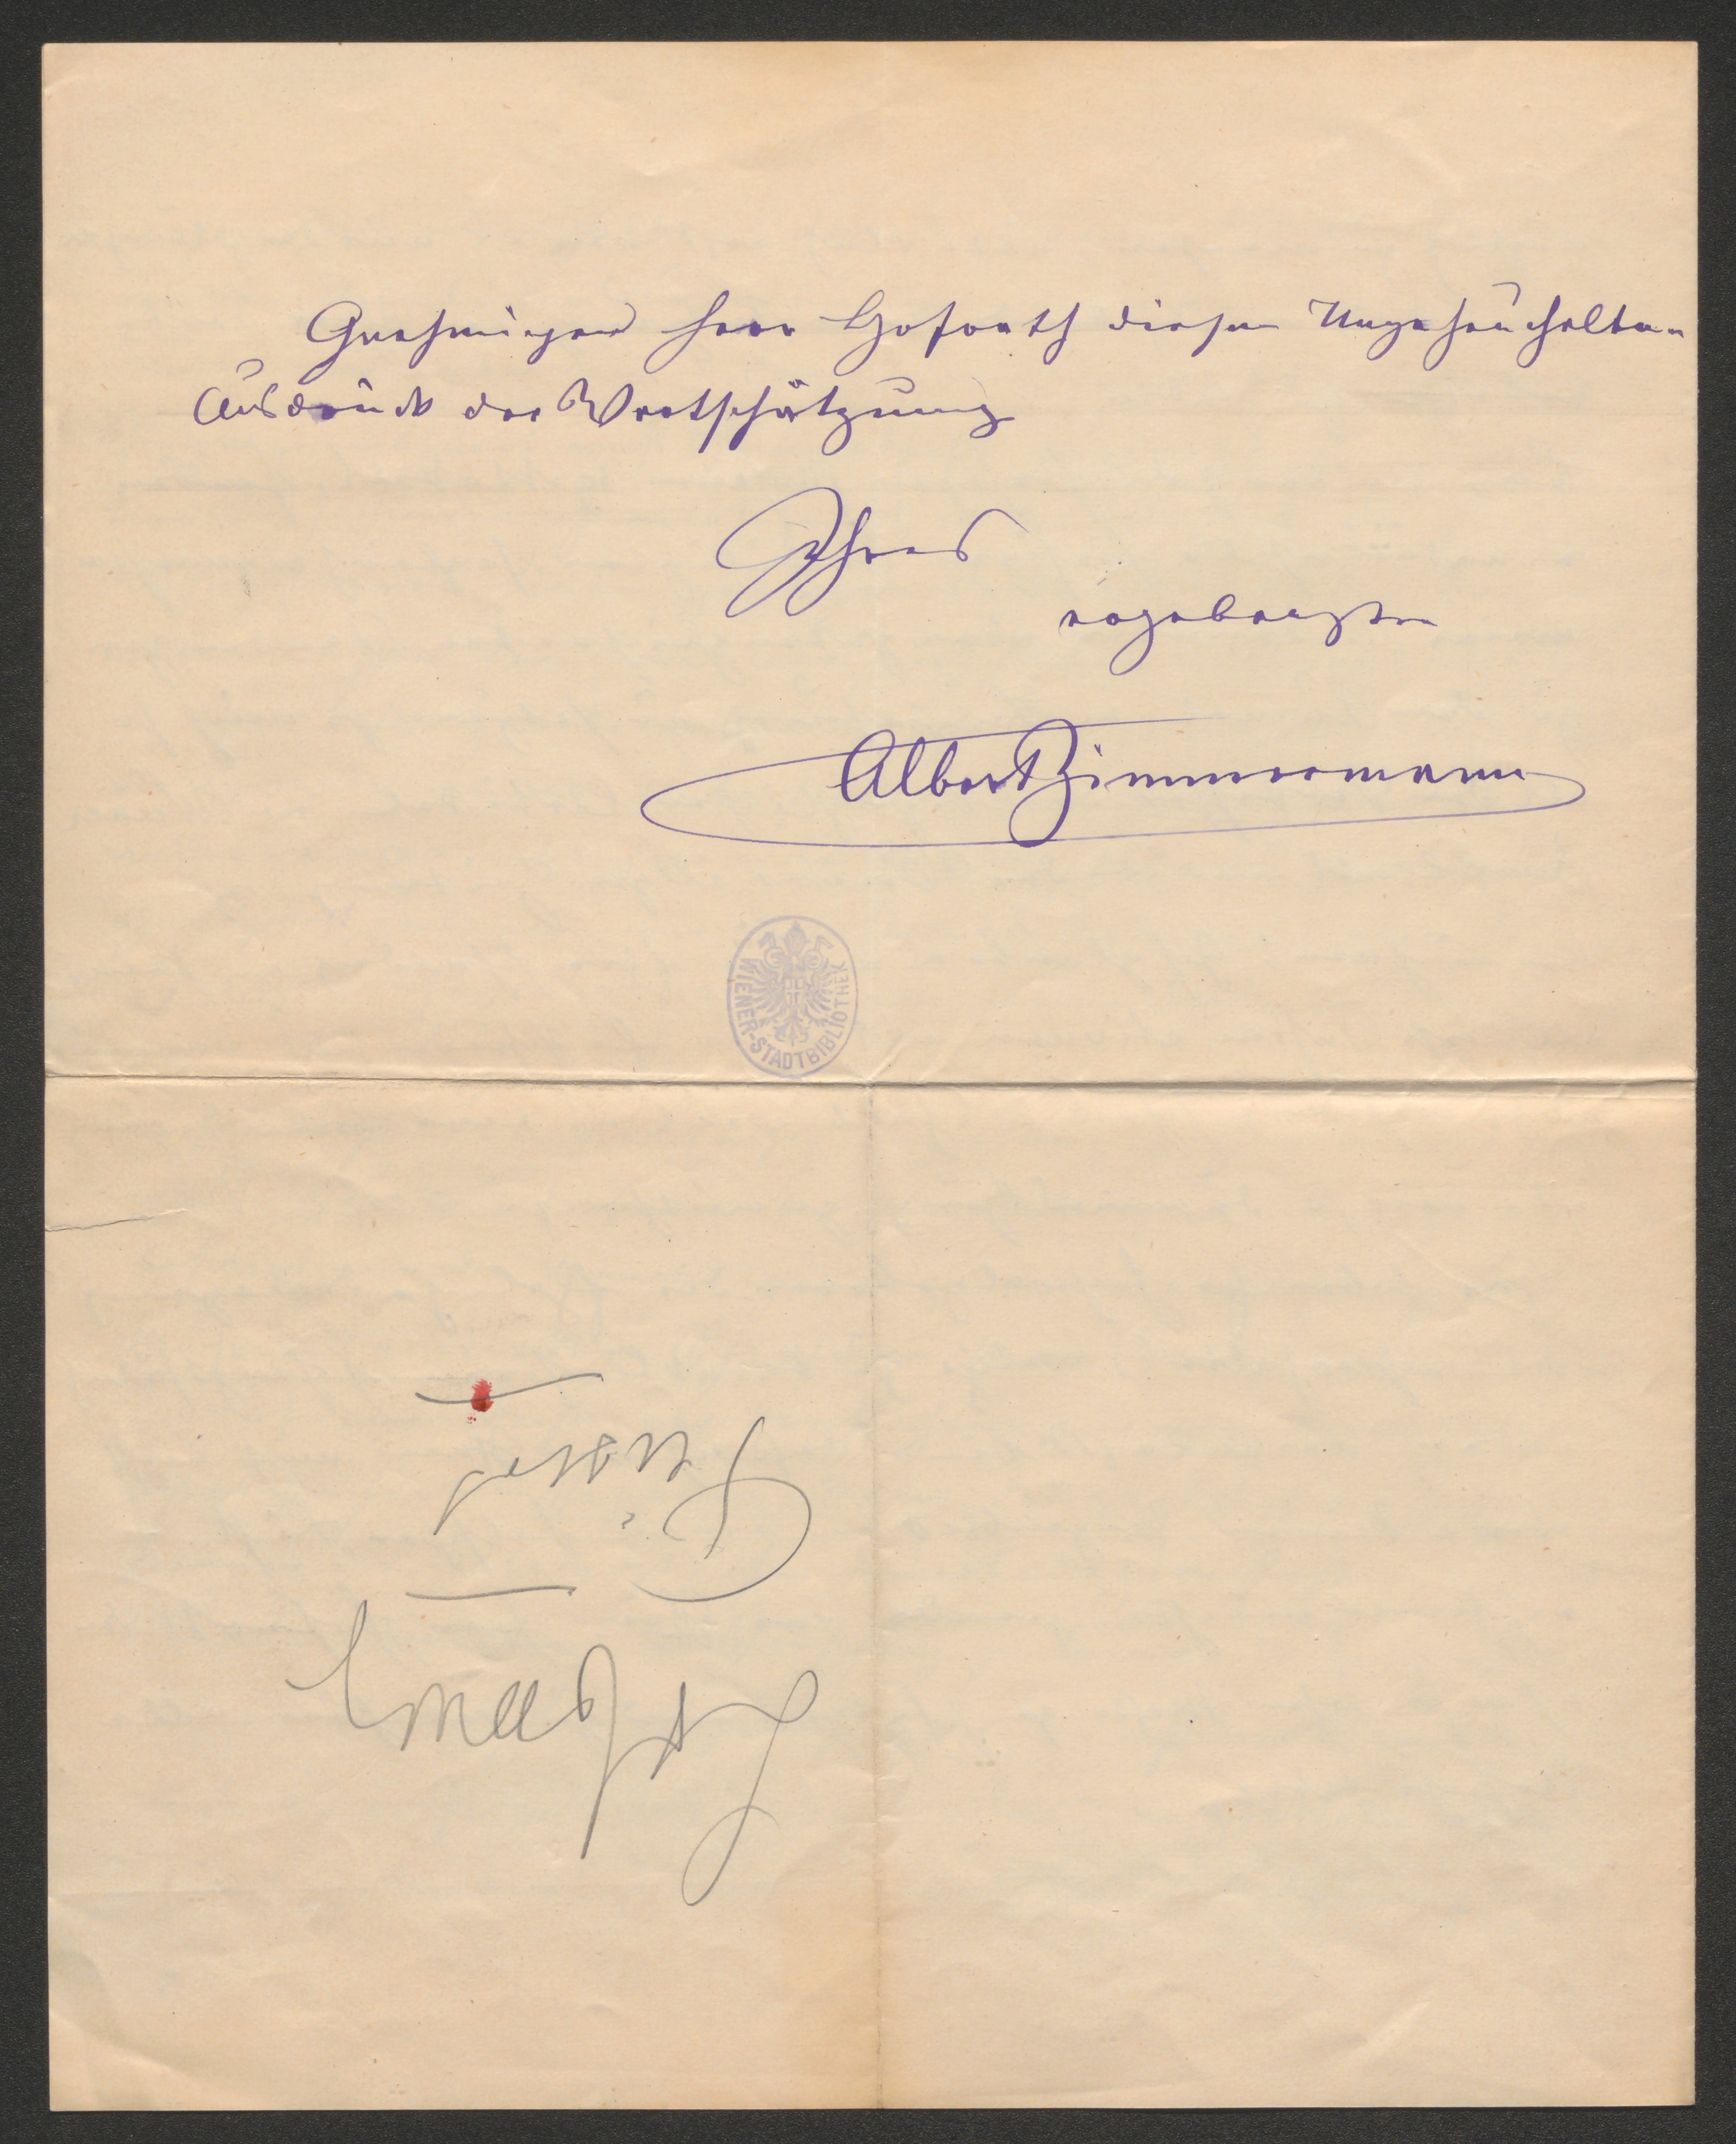 Genehmigen Herr Hofrath diesen Ungeheuchelten
Ausdruck der Wertschätzung
Ihres
ergebensten
Albert Zimmermann
WIENER-STADTBIBLIOTHEK